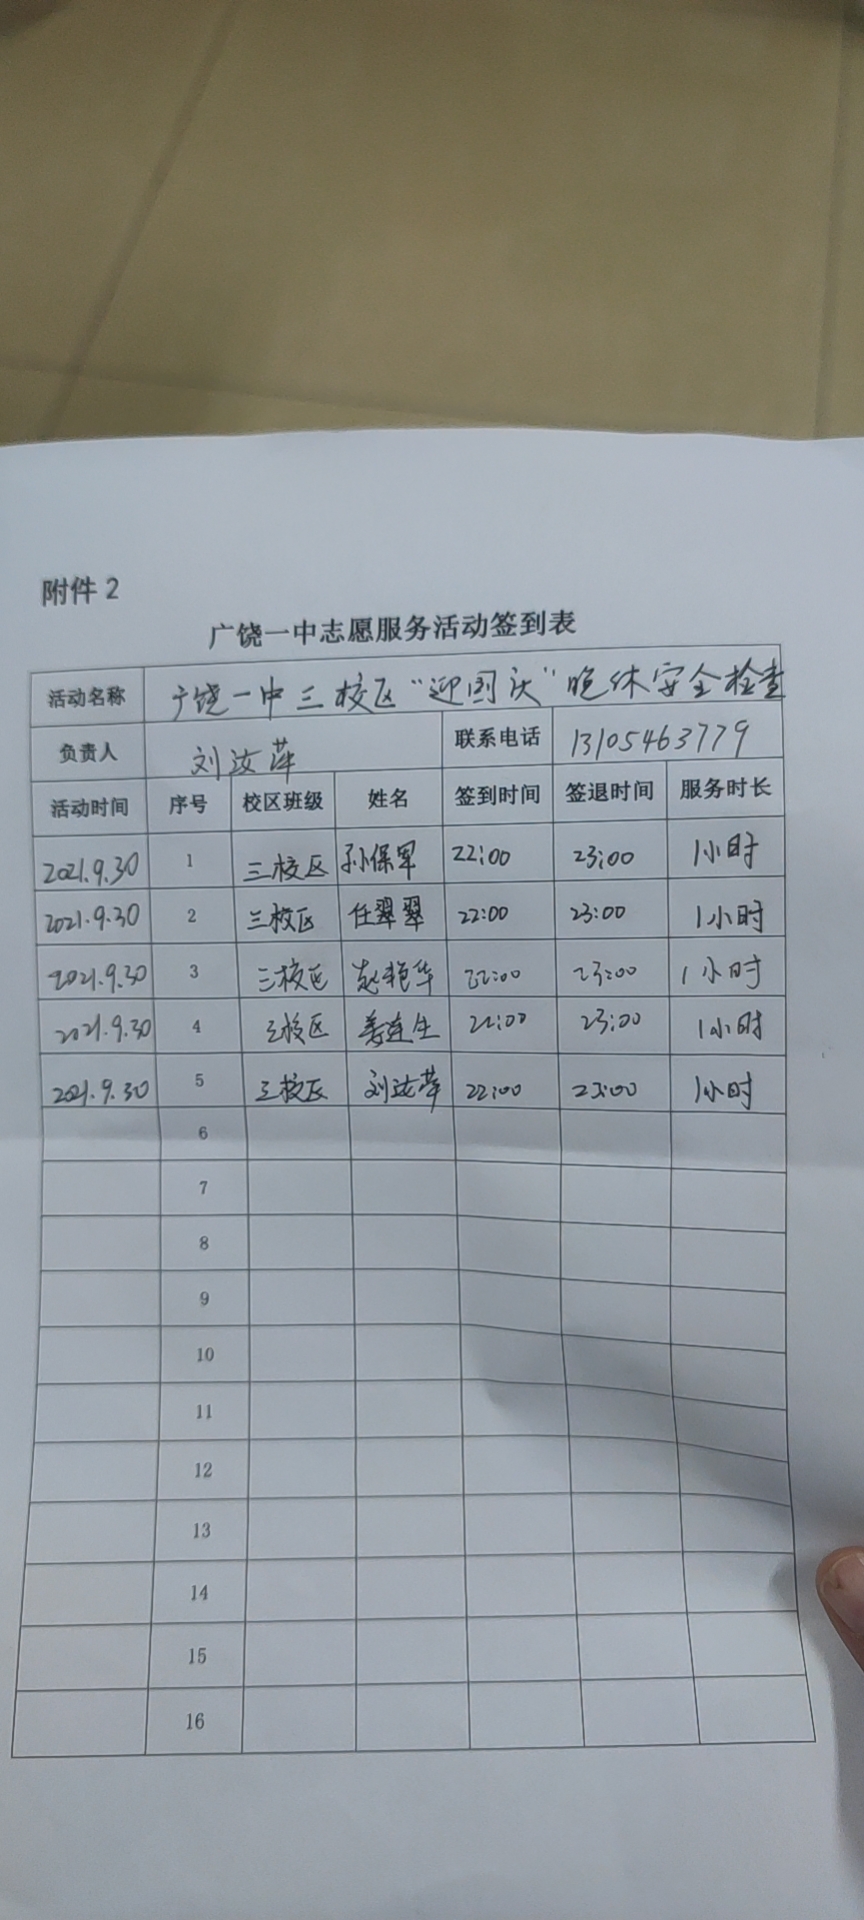 附件2
广饶一中志愿服务活动签到表
活动名称 广饶一中三校区“迎国庆”晚休安全检查
负责人 刘汝萍 联系电话 13105463779
活动时间 序号 校区班级 姓名 签到时间 签退时间 服务时长
2021.9.30 1 三校区 孙保军 22:00 23:00 1小时
2021.9.30 2 三校区 任翠翠 22:00 23:00 1小时
2021.9.30 3 三校区 赵艳华 22:00 23:00 1小时
2021.9.30 4 三校区 姜连生 22:00 23:00 1小时
2021.9.30 5 三校区 刘汝萍 22:00 23:00 1小时
6
7
8
9
10
11
12
13
14
15
16